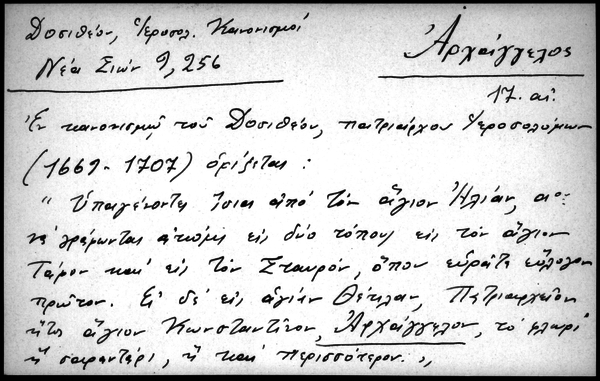 Δοσιθέου, Ἱεροσολ. Κανονισμοί
Νέα Σιών 9, 256
Ἀρχάγγελος
17. αἰ.
Ἐν κανονισμῷ τοῦ Δοσιθέου, πατριάρχου Ἱεροσολύμων
(1669-1707) ὁρίζεται :
" Ὑπαγένοντες ἴσια ἀπό τόν ἅγιον Ἠλίαν,
νά γράφωνται ἀκόμη εἰς δύο τόπους εἰς τόν ἅγιον
Τάφον καί εἰς τόν Σταυρόν, ὅπου εὑρᾶτε εὔλογον
πρῶτον. Εἰ δέ εἰς ἁγίαν Θέκλαν, Πατριαρχεῖον
ἤτε ἅγιον Κωνσταντῖνον, Ἀρχάγγελον, τό φλωρί
ἤ σαραντάρι, ἤ καί περισσότερον. „